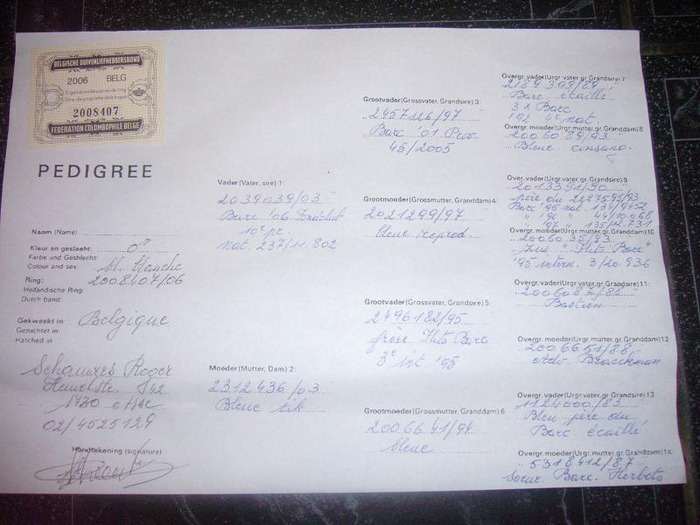 BELGISCHE DUIVENLIEFHEBBERSBOND
2006 BELG
2008407
FEDERATION COLOMBOPHILE BELGE
PEDIGREE
Naam (Name)
Kleur en geslacht:
Farbe und Geslecht:
Colour and sex:
Ring: 2008407/06
Holländische Ring:
Dutch band:
Gekweekt in Belgique
Gezuchtet in
Hatched in
Roger
1730
02/4525129
Handtekening (signature)
Vader (Vater, sire) 1:
2039039/03
Barc '06
10e pr.
nat. 237/11.802
Moeder (Mutter, Dam) 2:
2312436/03
Bleue
Grootvader (Grossvater, Grandsire) 3
2457126/97
Barc '01
45/2005
Grootmoeder (Grossmutter, Grandam) 4
2021299/97
bleue reprod.
Grootvader (Grossvater, Grandsire) 5
2496182/95
frère Barc
3e int '95
Grootmoeder (Grossmutter, Grandam) 6
2006641/94
bleue
Overgr. vader (Urgr. vater, gr. Grandsire) 7
2189309/89
Barc écaillé
3x Barc
'92 4e nat.
Overgr. moeder (Urgr. mutter, gr. Grandam) 8
2006039/93
Bleue consang.
Overgr. vader (Urgr. vater, gr. Grandsire) 9
2013391/90
père du
Barc '95 nat
Overgr. moeder (Urgr. mutter, gr. Grandam) 10
20060.35/93
Barc"
'95 intern. 3/20.936
Overgr. vader (Urgr. vater, gr. Grandsire) 11:
Bastien
Overgr. moeder (Urgr. mutter, gr. Grandam) 12
2006651/88
Braeckman
Overgr. vader (Urgr. vater, gr. Grandsire) 13
1124000/83
Bleu père du
Barc. écaillé
Overgr. moeder (Urgr. mutter, gr. Grandam) 14
5318412/87
soeur Barc. Herbots